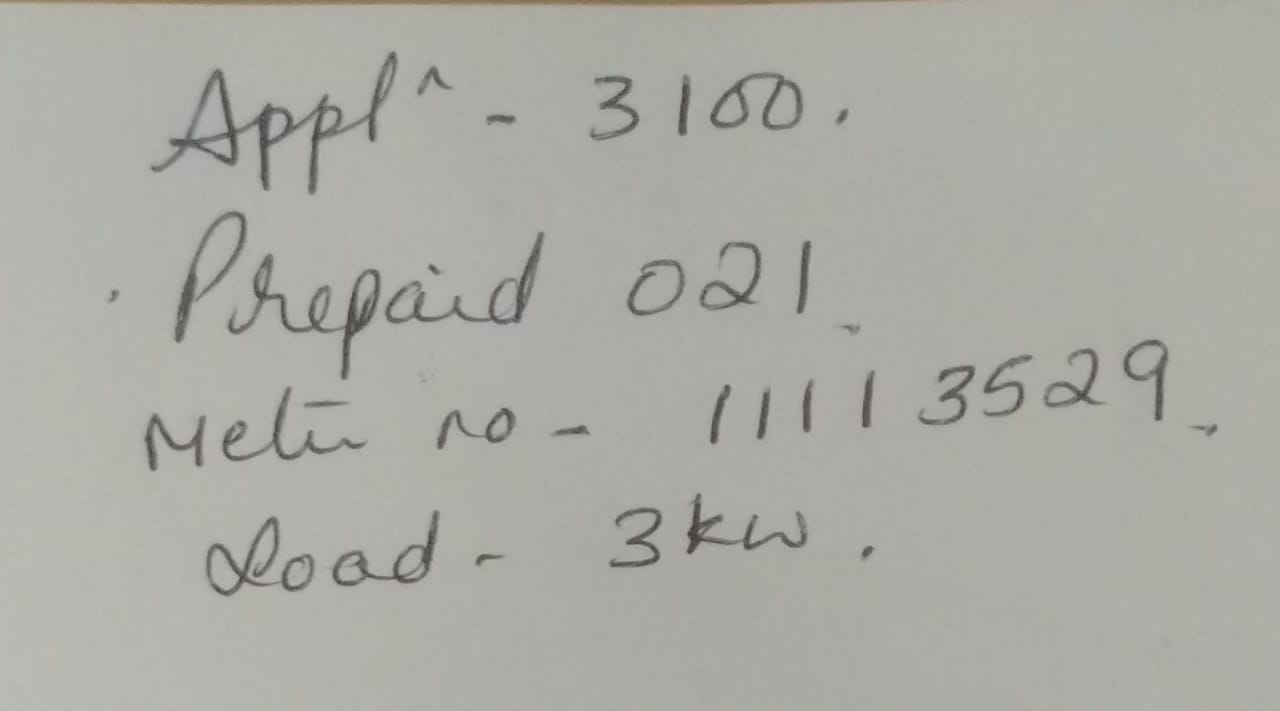 Appl^n - 3100.
Prepaid 021.
Meter no - 11113529.
Load - 3kw.